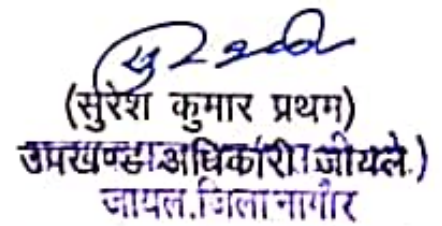 (सुरेश कुमार प्रथम)
उपखण्ड अधिकारी जायल)
जायल. जिला नागौर